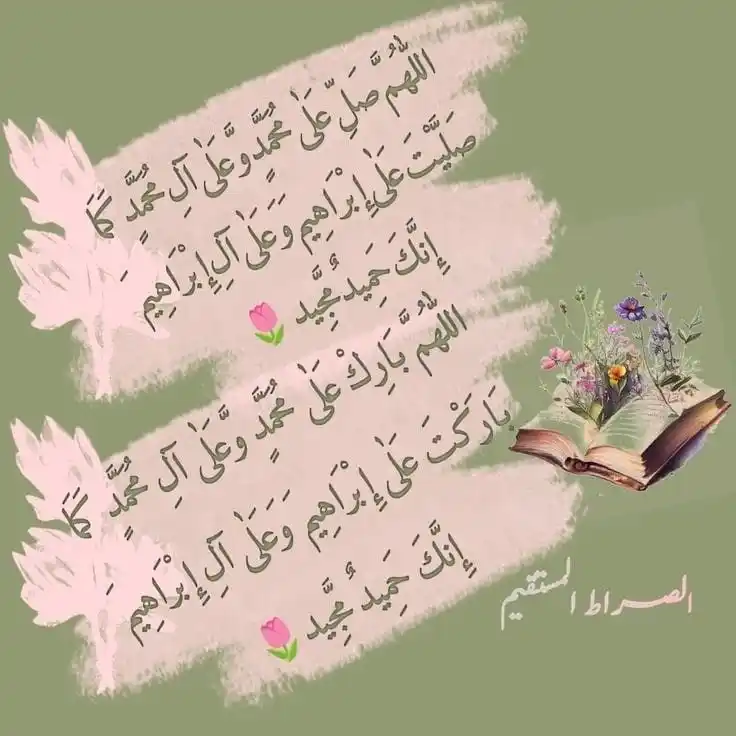 اَللّٰهُمَّ صَلِّ عَلٰى مُحَمَّدٍ وَّعَلٰى آلِ مُحَمَّدٍ كَمَا
صَلَّيْتَ عَلٰى إِبْرَاهِيمَ وَعَلٰى آلِ إِبْرَاهِيمَ
إِنَّكَ حَمِيدٌ مَّجِيدٌ
اَللّٰهُمَّ بَارِكْ عَلٰى مُحَمَّدٍ وَّعَلٰى آلِ مُحَمَّدٍ كَمَا
بَارَكْتَ عَلٰى إِبْرَاهِيمَ وَعَلٰى آلِ إِبْرَاهِيمَ
إِنَّكَ حَمِيدٌ مَّجِيدٌ
الصراط المستقيم